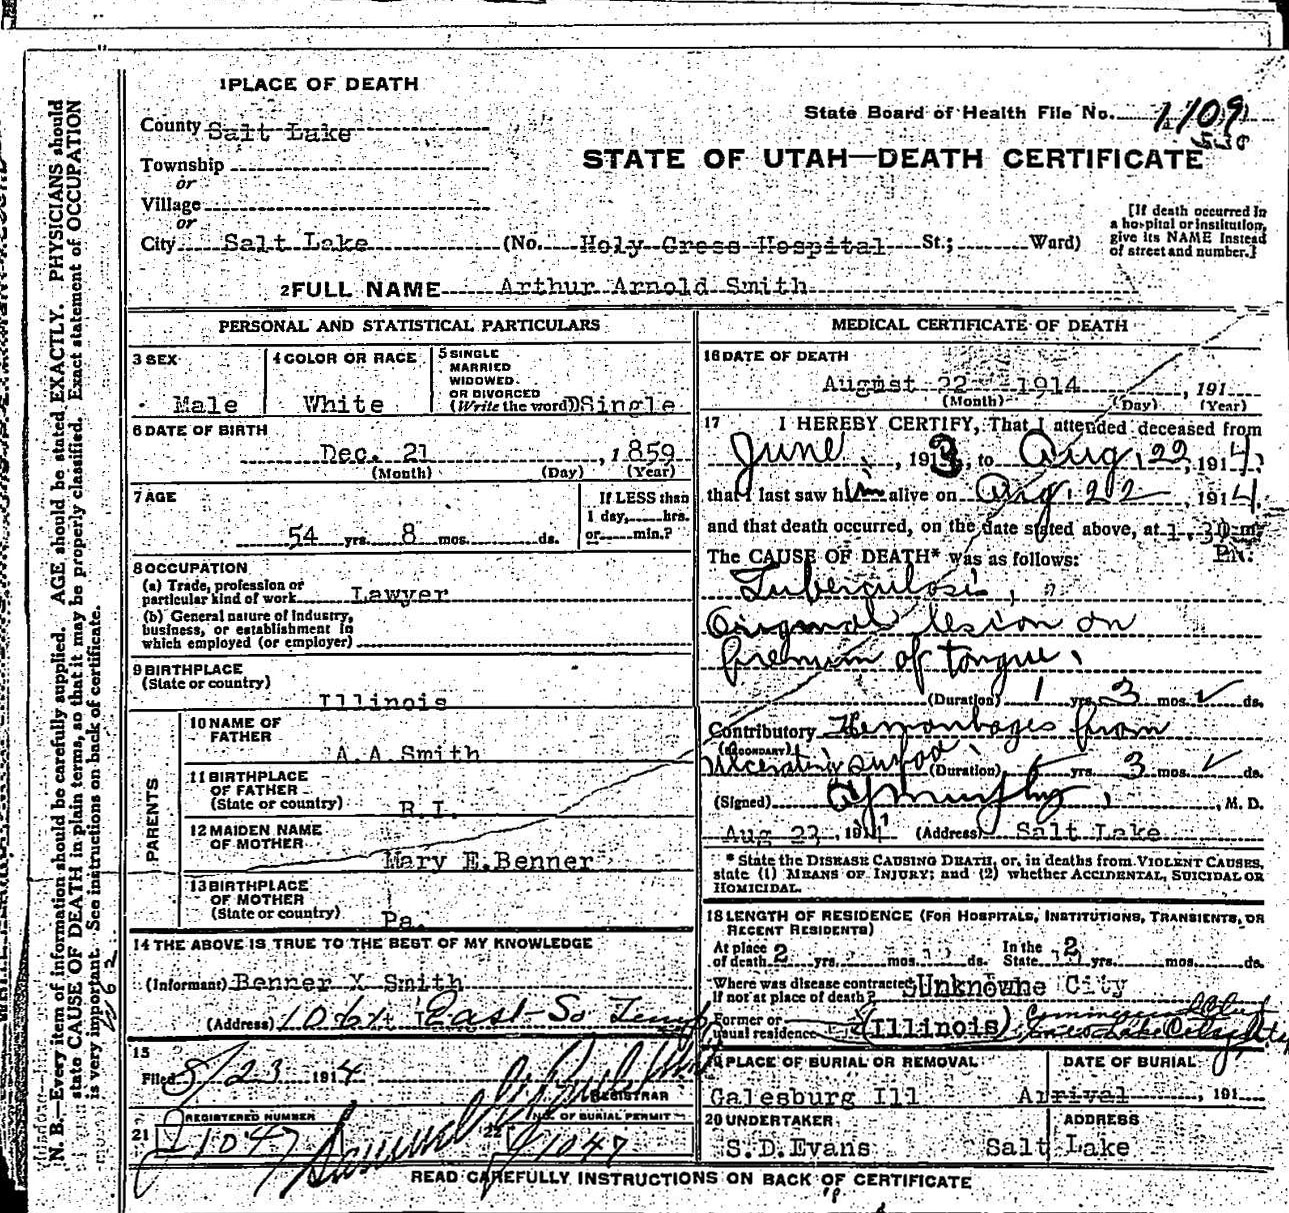 1 PLACE OF DEATH
County Salt Lake
State Board of Health File No. 1109
Township
or
STATE OF UTAH—DEATH CERTIFICATE
Village
or
City Salt Lake (No. Holy Cross Hospital St.; Ward)
[If death occurred in
a hospital or institution,
give its NAME instead
of street and number.]
2 FULL NAME Arthur Arnold Smith
PERSONAL AND STATISTICAL PARTICULARS
3 SEX
Male
4 COLOR OR RACE
White
5 SINGLE
MARRIED
WIDOWED
OR DIVORCED
(Write the word) Single
6 DATE OF BIRTH
Dec. 21, 1859
(Month) (Day) (Year)
7 AGE
54 yrs. 8 mos. ds.
If LESS than
1 day, hrs.
or min.?
8 OCCUPATION
(a) Trade, profession or
particular kind of work Lawyer
(b) General nature of industry,
business, or establishment in
which employed (or employer)
9 BIRTHPLACE
(State or country)
Illinois
PARENTS
10 NAME OF
FATHER
A.A.Smith
11 BIRTHPLACE
OF FATHER
(State or country)
R.I.
12 MAIDEN NAME
OF MOTHER
Mary E.Benner
13 BIRTHPLACE
OF MOTHER
(State or country)
Pa.
14 THE ABOVE IS TRUE TO THE BEST OF MY KNOWLEDGE
(Informant) Benner X Smith
(Address) 1061 East So Temp
15
Filed 8/23 1914
REGISTRAR
REGISTERED NUMBER
21 1047
NO. OF BURIAL PERMIT
22 1047
MEDICAL CERTIFICATE OF DEATH
16 DATE OF DEATH
August 22 1914, 191
(Month) (Day) (Year)
17 I HEREBY CERTIFY, That I attended deceased from
June, 1913, to Aug, 22, 1914,
that I last saw him alive on Aug. 22, 1914.
and that death occurred, on the date stated above, at 1.30 m.
Pm.
The CAUSE OF DEATH* was as follows:
Tuberculosis,
Original lesion on
frenum of tongue.
(Duration) 1 yrs. 3 mos. ds.
Contributory Hemorrhages from
(SECONDARY)
ulcerating surface (Duration) yrs. 3 mos. ds.
(Signed) Murphy, M. D.
Aug 23, 1914 (Address) Salt Lake
* State the DISEASE CAUSING DEATH, or, in deaths from VIOLENT CAUSES,
state (1) MEANS OF INJURY; and (2) whether ACCIDENTAL, SUICIDAL OR
HOMICIDAL.
18 LENGTH OF RESIDENCE (FOR HOSPITALS, INSTITUTIONS, TRANSIENTS, OR
RECENT RESIDENTS)
At place of death 2 yrs. mos. ds. In the State 2 yrs. mos. ds.
Where was disease contracted
If not at place of death? Unknowne City
Former or
usual residence (Illinois) Commercial Club
Salt Lake City
19 PLACE OF BURIAL OR REMOVAL
Galesburg Ill
DATE OF BURIAL
Arrival, 191
20 UNDERTAKER
S.D.Evans
ADDRESS
Salt Lake
READ CAREFULLY INSTRUCTIONS ON BACK OF CERTIFICATE
N. B.—Every item of information should be carefully supplied. AGE should be stated EXACTLY. PHYSICIANS should
state CAUSE OF DEATH in plain terms, so that it may be properly classified. Exact statement of OCCUPATION
is very important. See instructions on back of certificate.